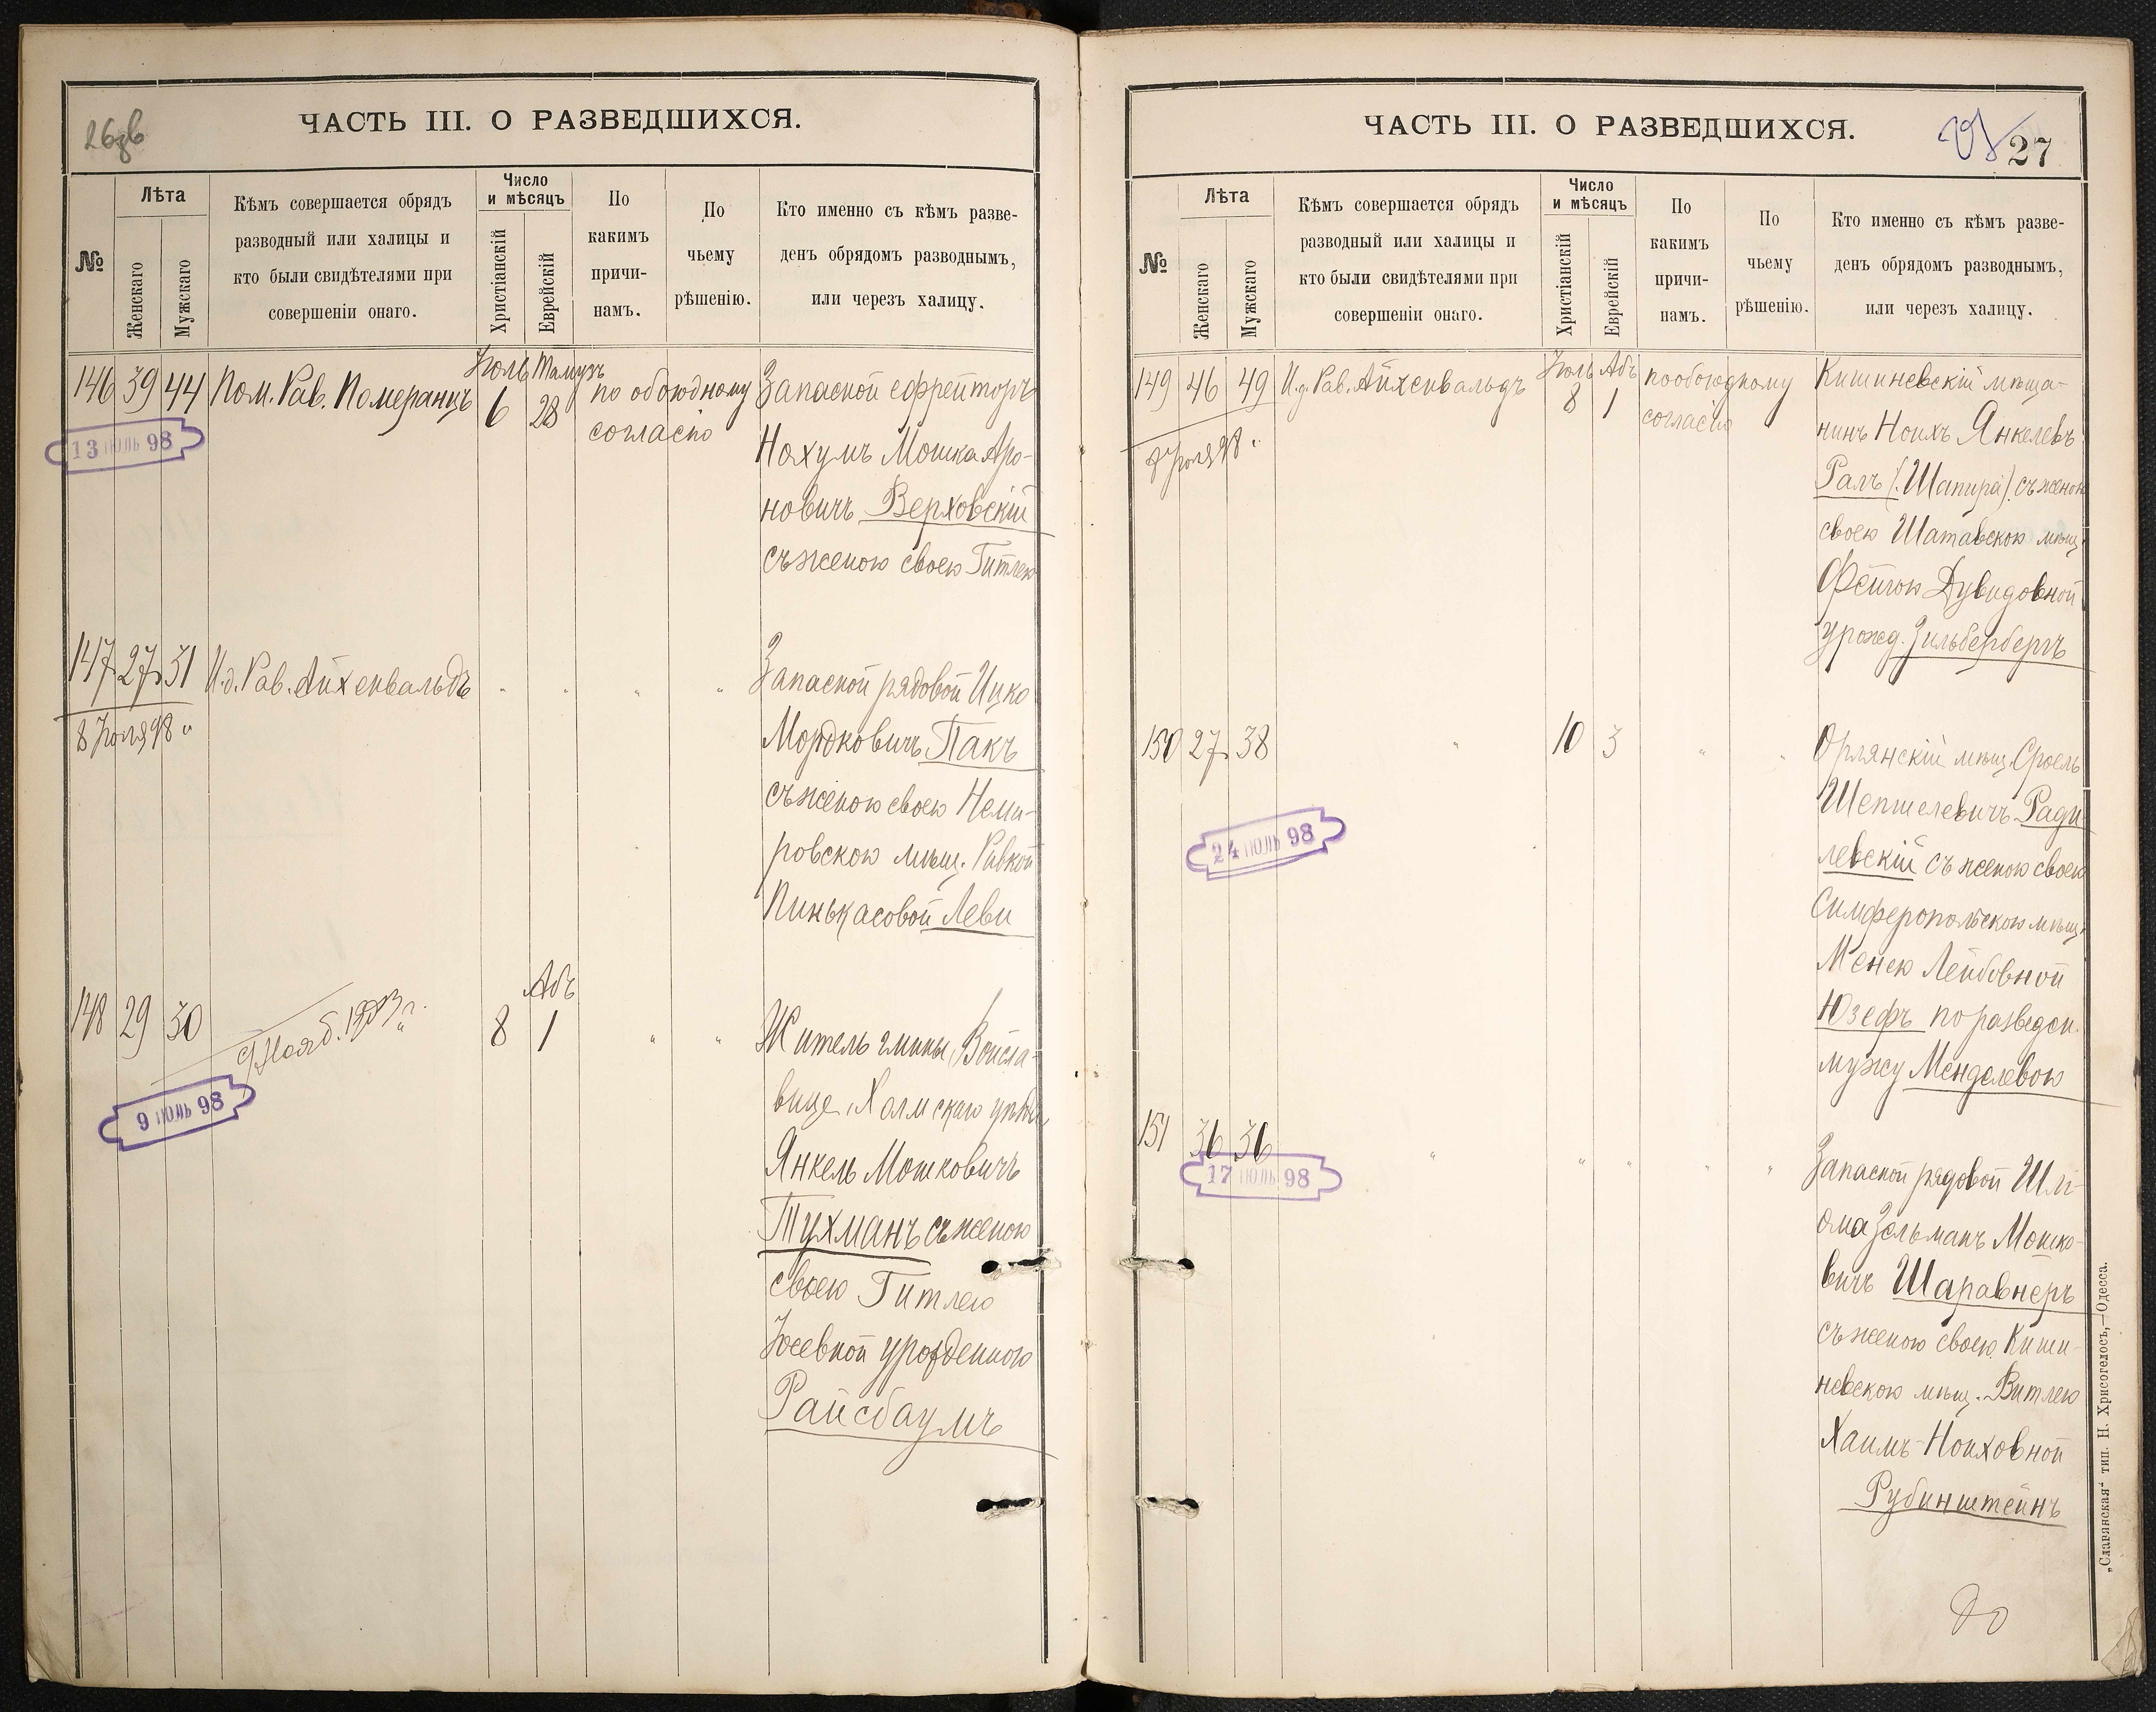 26об
ЧАСТЬ III. О РАЗВЕДШИХСЯ.
№
Лѣта
Женскаго
Мужскаго
Кѣмъ совершается обрядъ
разводный или халицы и
кто были свидѣтелями при
совершеніи онаго.
Число
и мѣсяцъ
Христіанскій
Еврейскій
По
какимъ
причи-
намъ.
По
чьему
рѣшенію.
Кто именно съ кѣмъ разве-
денъ обрядомъ разводнымъ,
или черезъ халицу.
146 39 44 Пом. Рав. Померанцъ
Іюль Тамузъ
6 28
по обоюдному
согласію
13 ІЮЛЬ 98
Запасной ефрейторъ
Нахумъ Мошка Аро-
новичъ Верховскій
съ женою своею Гитлею
147 27 31 И.д. Рав. Айхенвальдъ " " " "
8 Іюля 98 "
Запасной рядовой Ицко
Мордковичъ Пакъ
съ женою своею Неми-
ровскою мѣщ. Ривкой
Пинькасовой Леви
148 29 30
9 Нояб. 1903 г.
Абъ
8 1 " "
9 ІЮЛЬ 98
Житель гмины Войсла-
вице, Холмскаго уѣзда,
Янкель Мошковичъ
Тухманъ съ женою
своею Гитлею
Іосевной урожденною
Райсбаумъ
ЧАСТЬ III. О РАЗВЕДШИХСЯ.
27
№
Лѣта
Женскаго
Мужскаго
Кѣмъ совершается обрядъ
разводный или халицы и
кто были свидѣтелями при
совершеніи онаго.
Число
и мѣсяцъ
Христіанскій
Еврейскій
По
какимъ
причи-
намъ.
По
чьему
рѣшенію.
Кто именно съ кѣмъ разве-
денъ обрядомъ разводнымъ,
или черезъ халицу.
149 46 49 И.д. Рав. Айхенвальдъ
Іюль Абъ
8 1
по обоюдному
согласію
Іюля 98 "
Кишиневскій мѣща-
нинъ Ноихъ Янкелевъ
Ралъ (Шапира) съ женою
своею Шатавскою мѣщ.
Фейгою Дувидовной
урожд. Зильбербергъ
150 27 38 " 10 3 " "
24 ІЮЛЬ 98
Орлянскій мѣщ. Сроель
Шепшелевичъ Ради-
левскій съ женою своею
Симферопольскою мѣщ.
Менею Лейбовной
Юзефъ по разведен.
мужу Менделевою
151 36 36 " " " " "
17 ІЮЛЬ 98
Запасной рядовой Шлі-
ома Зельманъ Мошко-
вичъ Шаравнеръ
съ женою своею Киши-
невскою мѣщ. Витлею
Хаимъ-Ноиховной
Рубинштейнъ
„Славянская“ тип. Н. Хрисогелосъ,—Одесса.